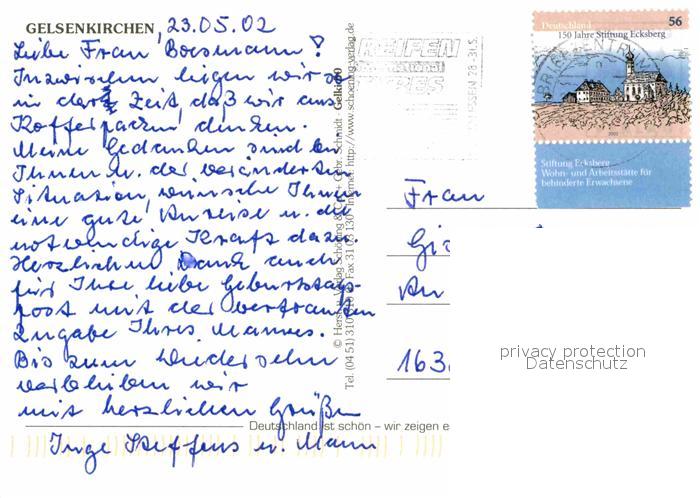 GELSENKIRCHEN, 23.05.02
Liebe Frau Boesmann!
Inzwischen liegen wir so
in der Zeit, daß wir ans
Kofferpacken denken.
Meine Gedanken sind bei
Ihnen u. der veränderten
Situation, wünsche Ihnen
eine gute Anreise u. die
notwendige Kraft dazu.
Herzlichen Dank auch
für Ihre liebe Geburtstags-
post mit der vertrauten
Zugabe Ihres Mannes.
Bis zum Wiedersehn
verbleiben wir
mit herzlichen Grüßen
Inge Steffens u. Mann
Deutschland ist schön – wir zeigen e
Tel. (04 51) 31 03 Fax 31 03 130 Internet: http://www.schoening-verlag.de
Schmidt · Gelki
REIFEN
ESSEN 28.-31.5.
BRIEFZENTRUM
Deutschland 56
150 Jahre Stiftung Ecksberg
2002
Stiftung Ecksberg
Wohn- und Arbeitsstätte für
behinderte Erwachsene
Frau
Gi
An
163
privacy protection
Datenschutz